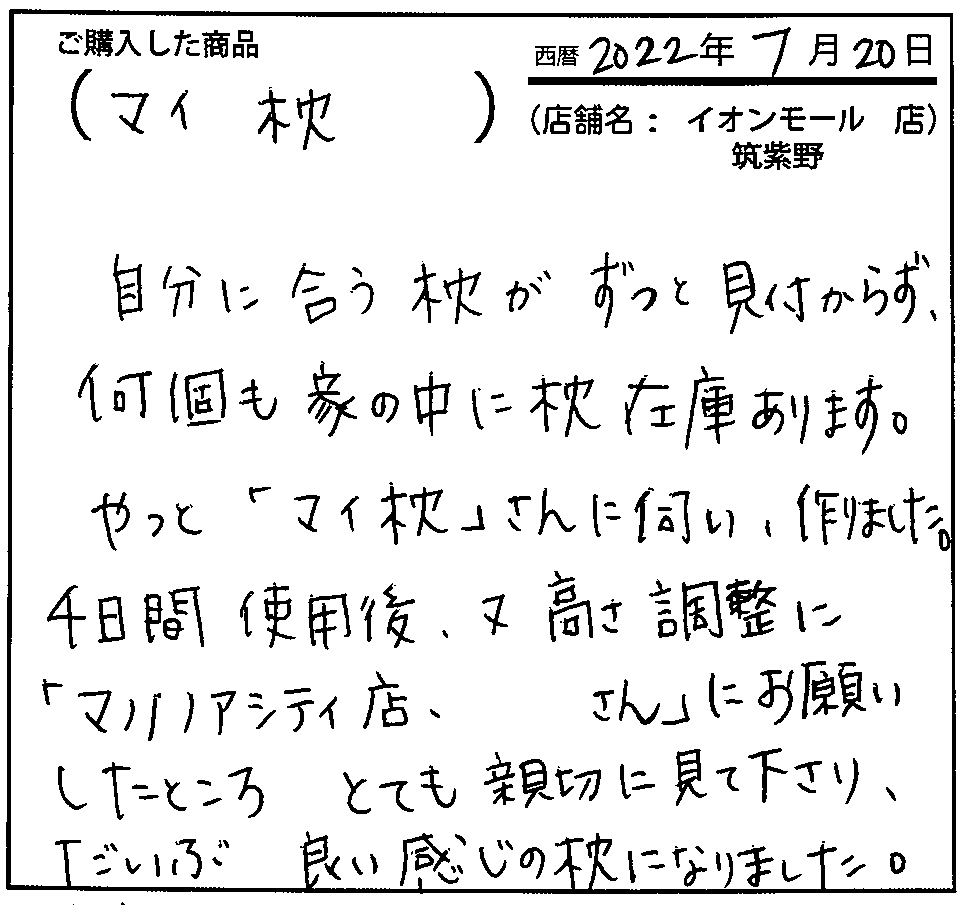 ご購入した商品
西暦 2022年 7月 20日
(マイ 枕 )
(店舗名: イオンモール 店)
筑紫野
自分に合う枕がずっと見付からず、
何個も家の中に枕在庫あります。
やっと「マイ枕」さんに伺い、作りました。
4日間使用後、又高さ調整に
「マリノアシティ店、 さん」にお願い
したところ とても親切に見て下さり、
だいぶ 良い感じの枕になりました。